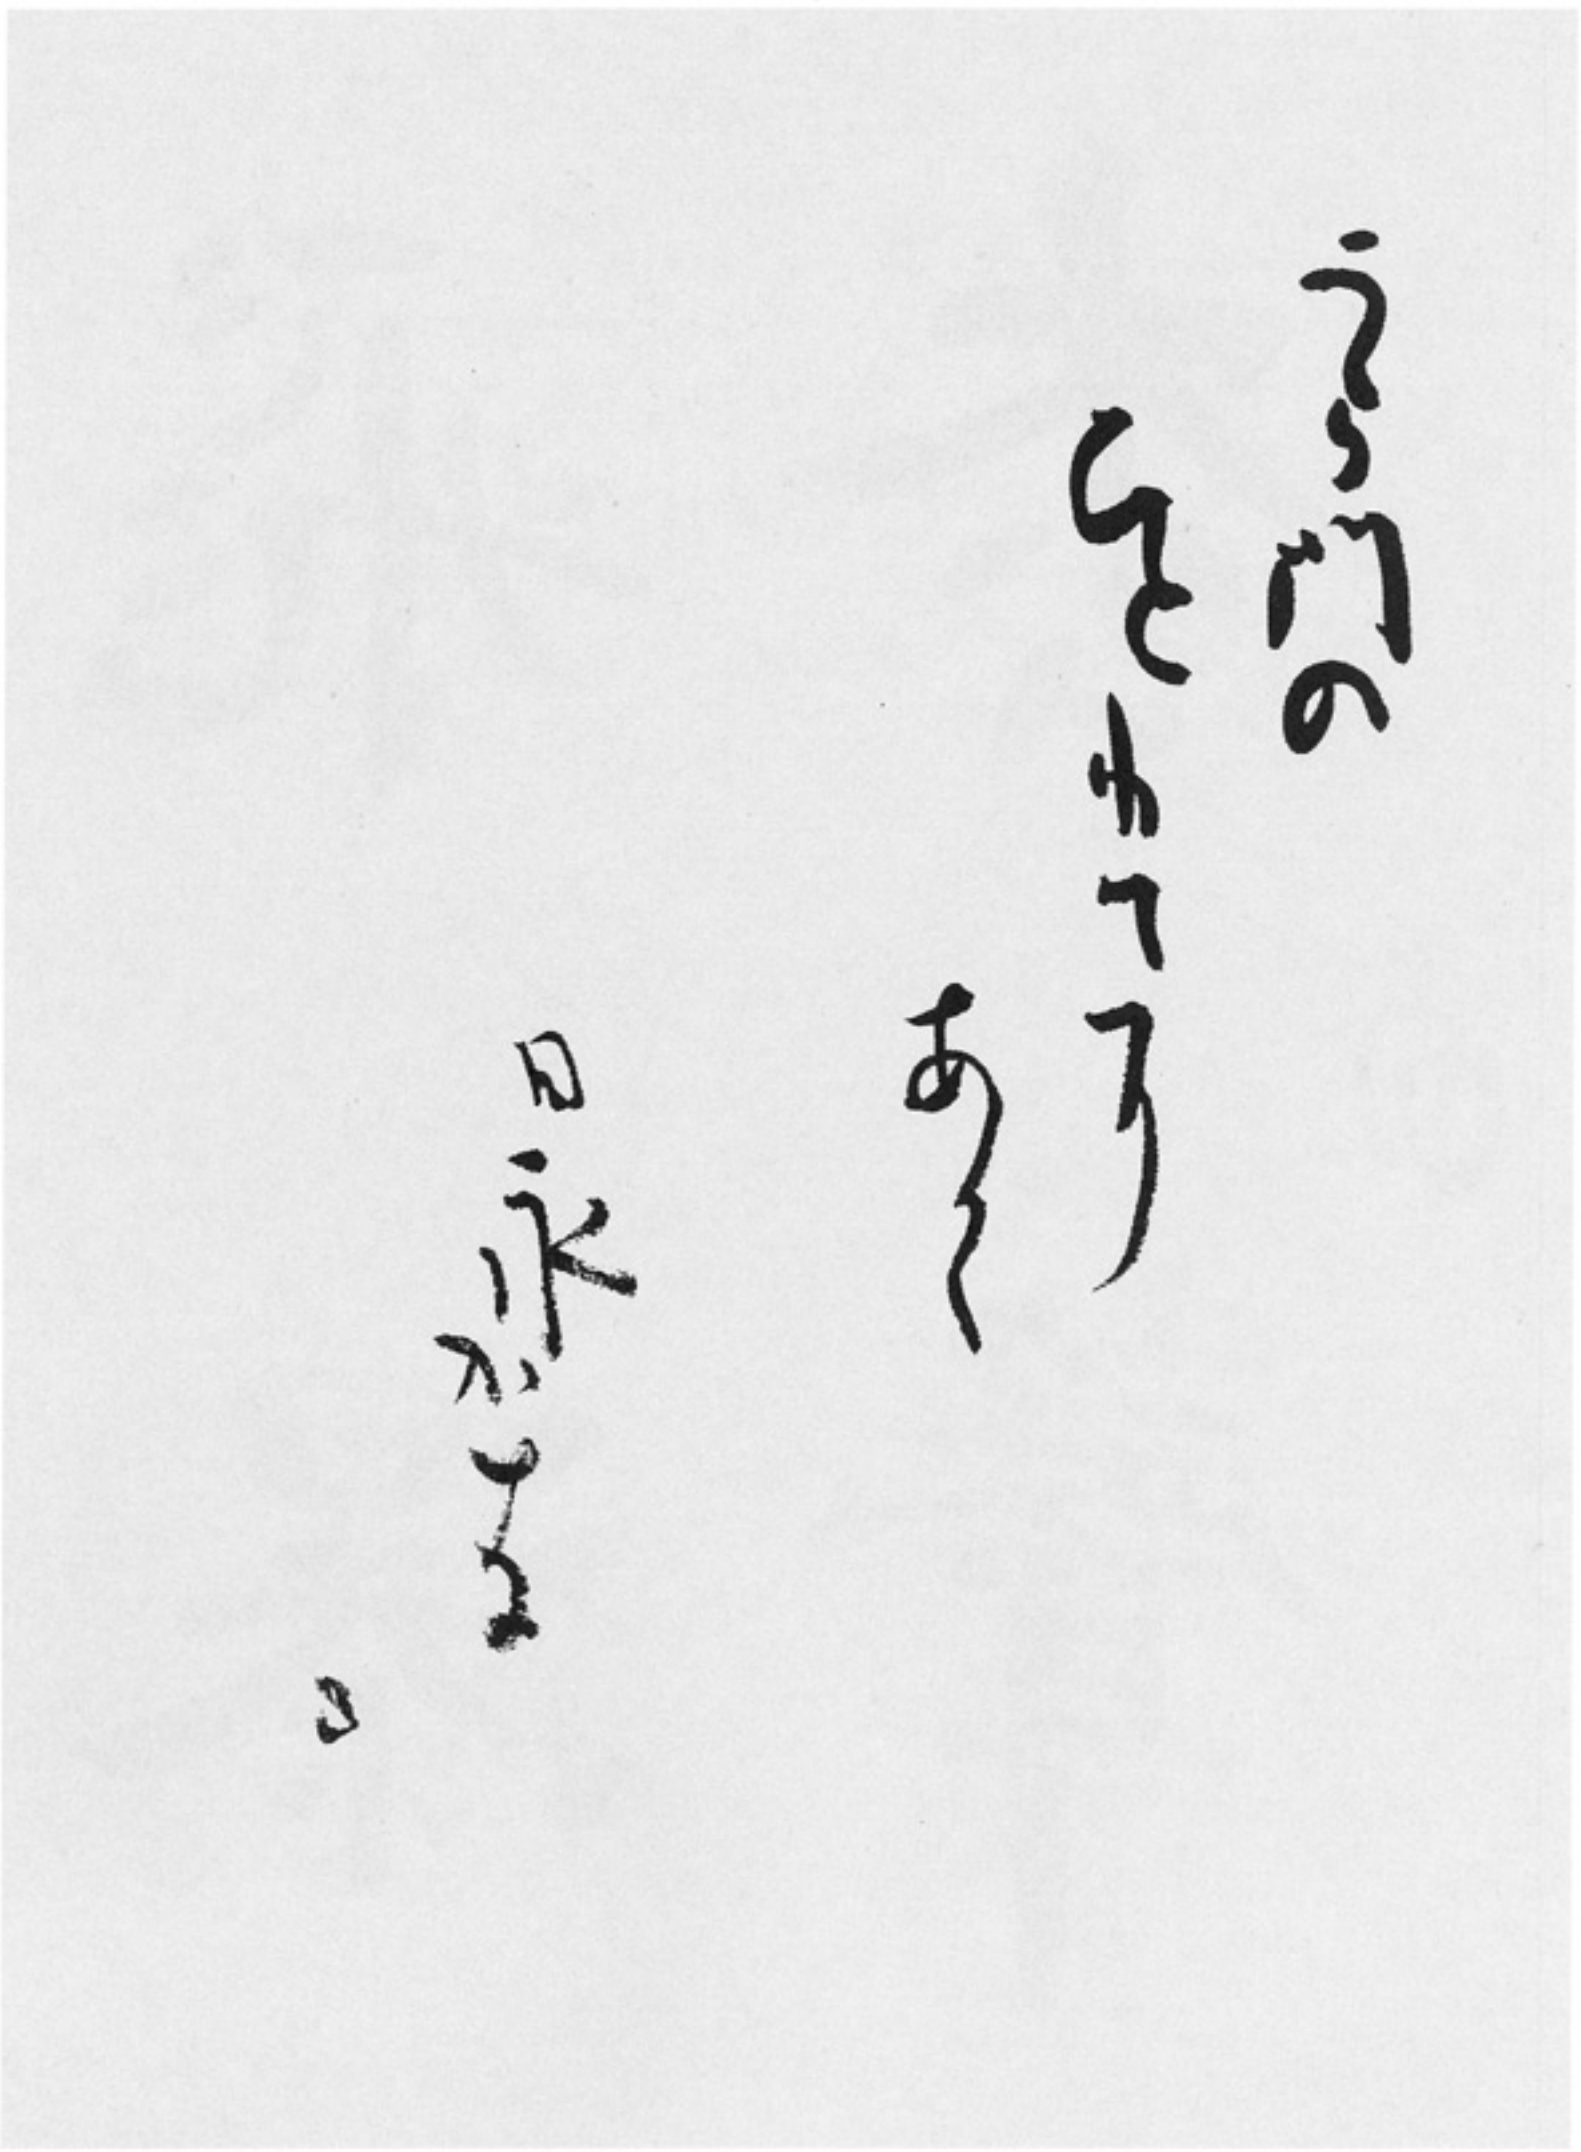 うら門の
ひとりてに
あく
日永かな